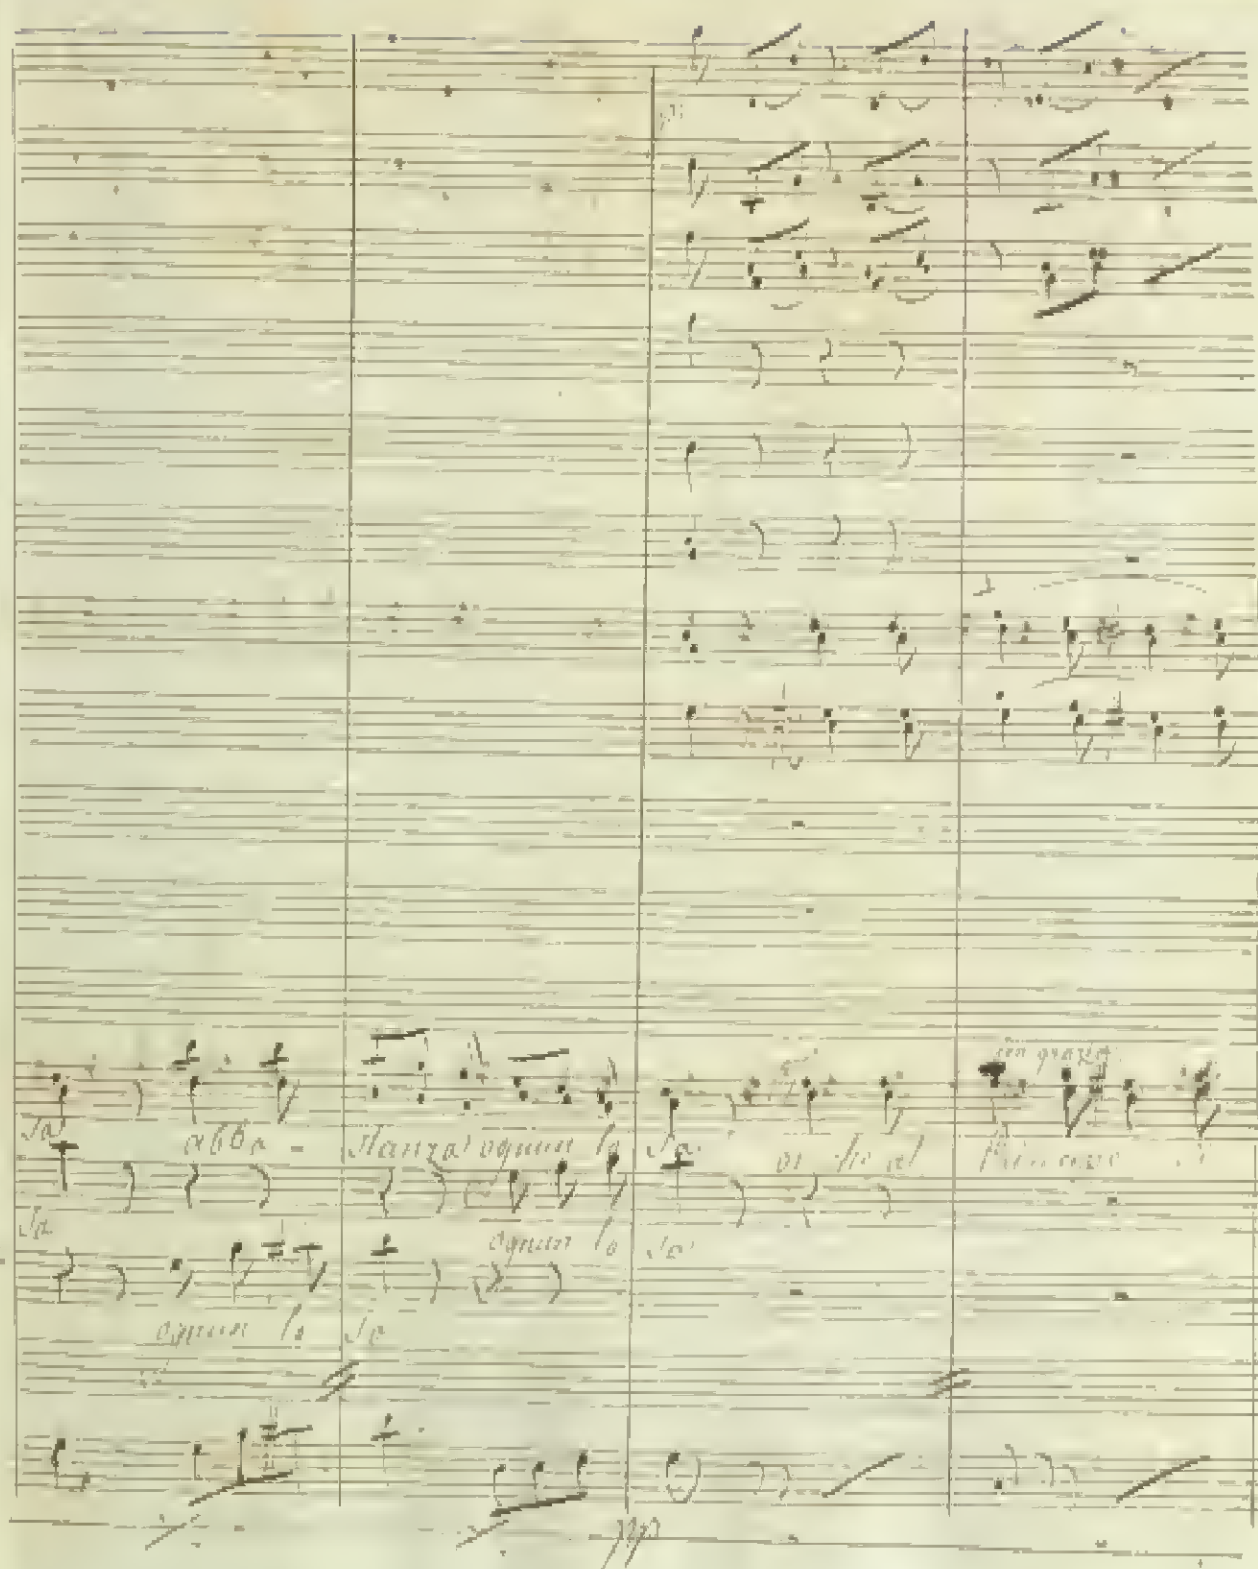 con grazia
Sa abba - stanza ognun lo sa or fu al
Sa ognun lo sa
ognun lo sa
ppp